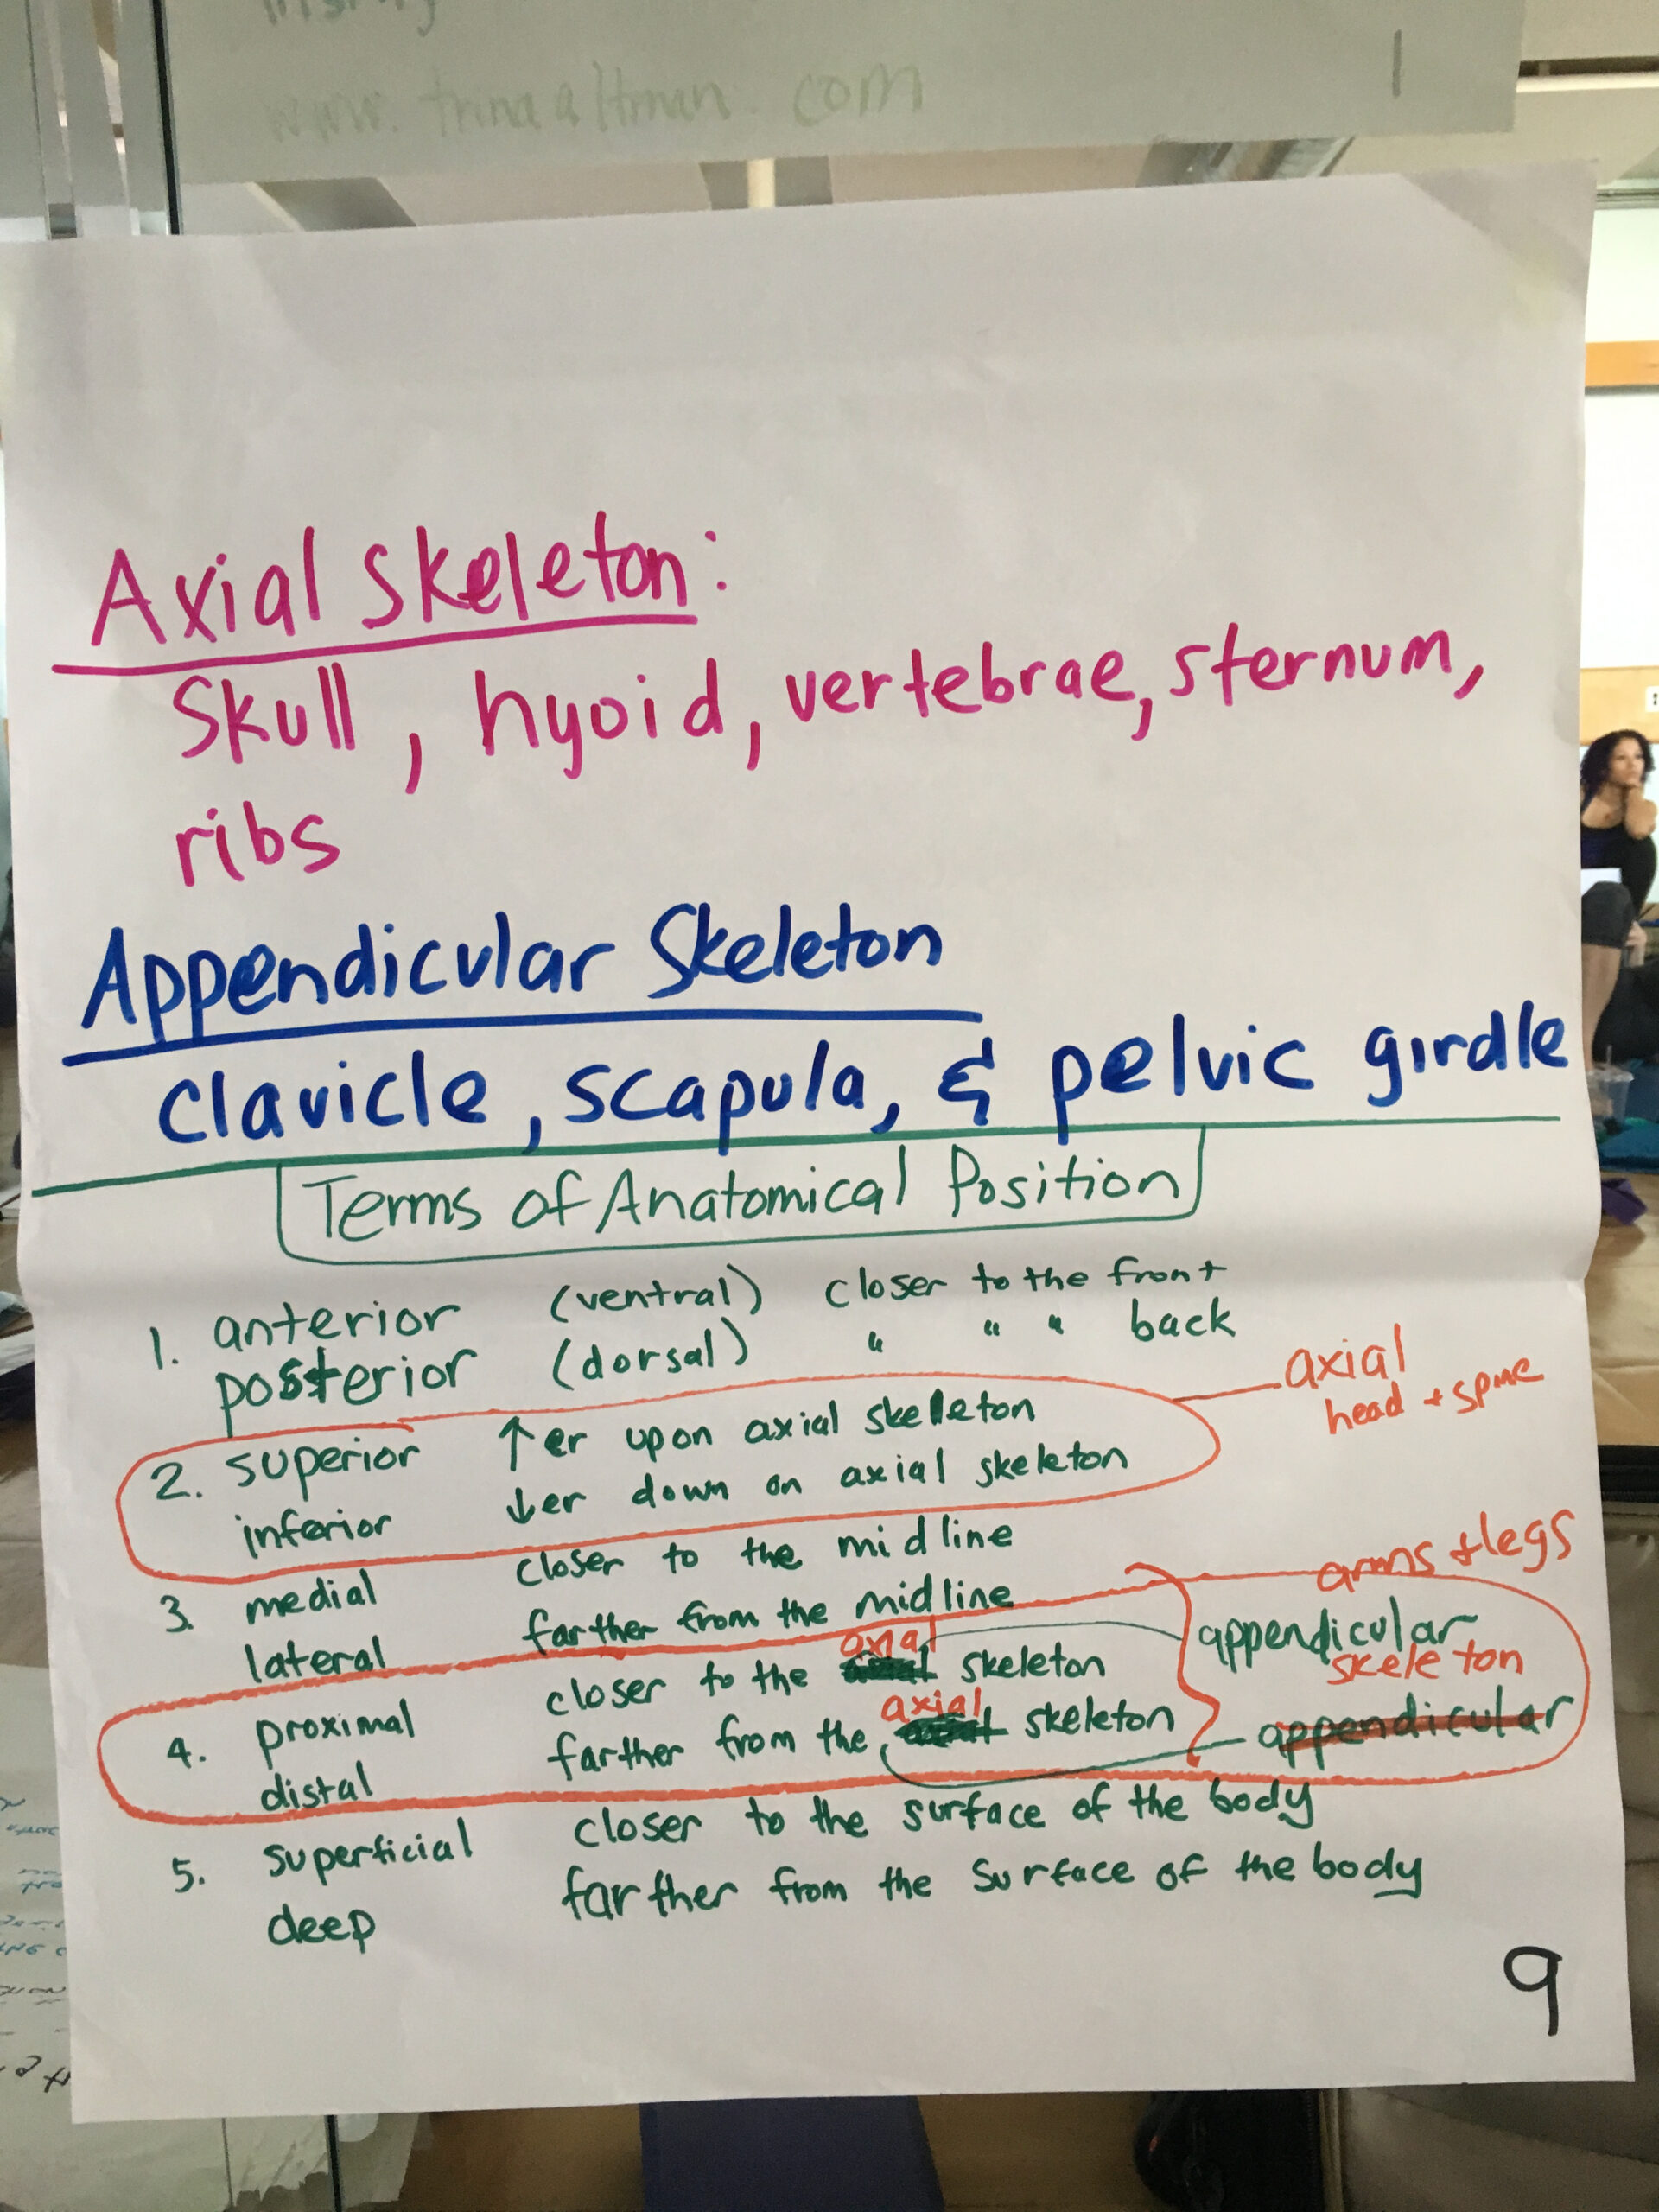 www.trinaaltman.com
Axial Skeleton:
Skull, hyoid, vertebrae, sternum,
ribs
Appendicular Skeleton
clavicle, scapula, & pelvic girdle
Terms of Anatomical Position
1. anterior (ventral) closer to the front
posterior (dorsal) " " " back
axial
head + spine
2. superior ↑er upon axial skeleton
inferior ↓er down on axial skeleton
3. medial closer to the midline
lateral farther from the midline
arms + legs
appendicular
skeleton
4. proximal closer to the axial skeleton
distal farther from the axial skeleton
appendicular
5. superficial closer to the surface of the body
deep farther from the surface of the body
9